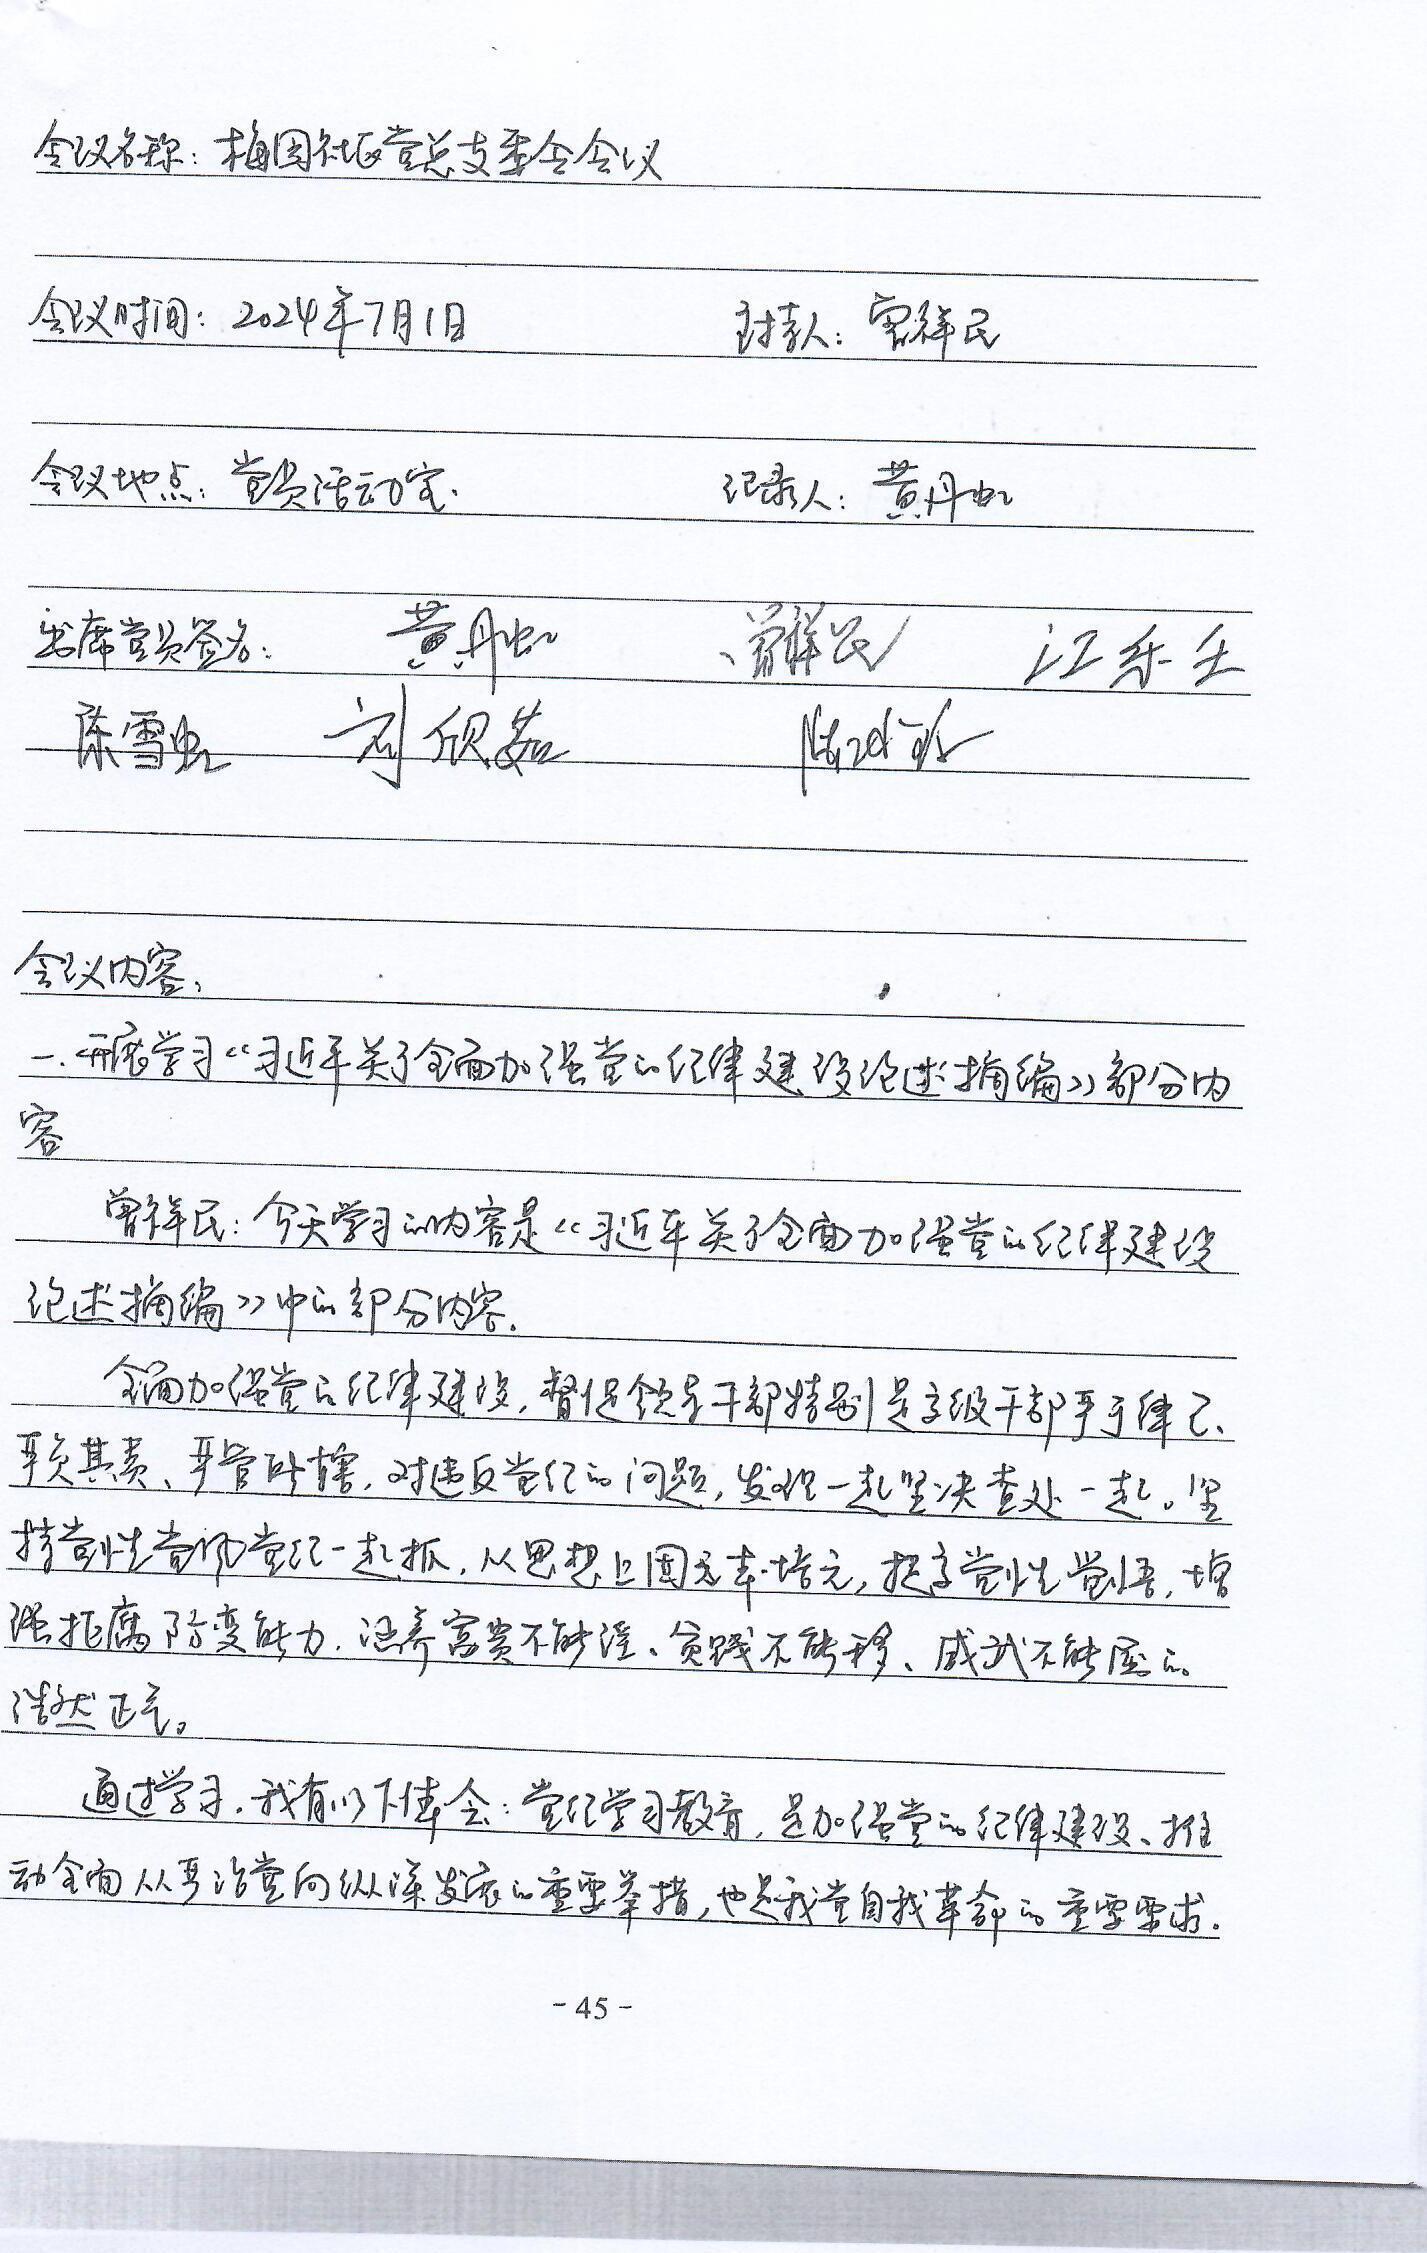 会议名称：梅园社区党总支委会会议
会议时间：2024年7月1日 主持人：曾祥民
会议地点：党员活动室. 记录人：黄丹虹
出席党员签名： 黄丹虹 曾祥民 江乐生
陈雪虹 刘欣茹
会议内容：
一.开展学习《习近平关于全面加强党的纪律建设论述摘编》部分内
容
曾祥民：今天学习的内容是《习近平关于全面加强党的纪律建设
论述摘编》中的部分内容.
全面加强党的纪律建设,督促领导干部特别是高级干部严于律己、
严负其责、严管所辖,对违反党纪的问题,发现一起坚决查处一起。坚
持党性党风党纪一起抓,从思想上固本培元,提高党性觉悟,增
强拒腐防变能力,涵养富贵不能淫、贫贱不能移、威武不能屈的
浩然正气。
通过学习,我有以下体会：党纪学习教育,是加强党的纪律建设、推
动全面从严治党向纵深发展的重要举措,也是我党自我革命的重要要求.
- 45 -